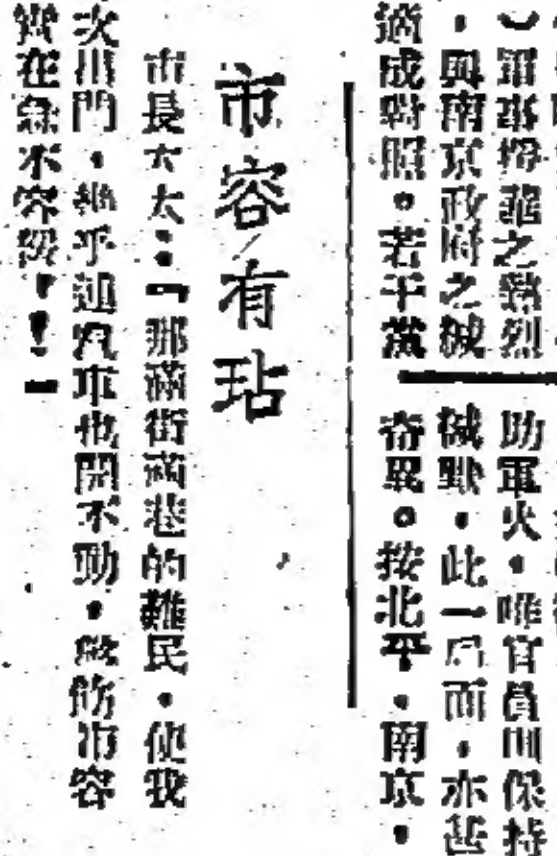 軍事援華之熱烈
，與南京政府之緘
適成對照。若干黨
助軍火，唯官員間保持
緘默，此一局面，亦甚
奇異。按北平，南京，
市容有玷
市長太太：「那滿街滿巷的難民，使我
次出門，幾乎連汽車也開不動，整飭市容
實在急不容緩！！」